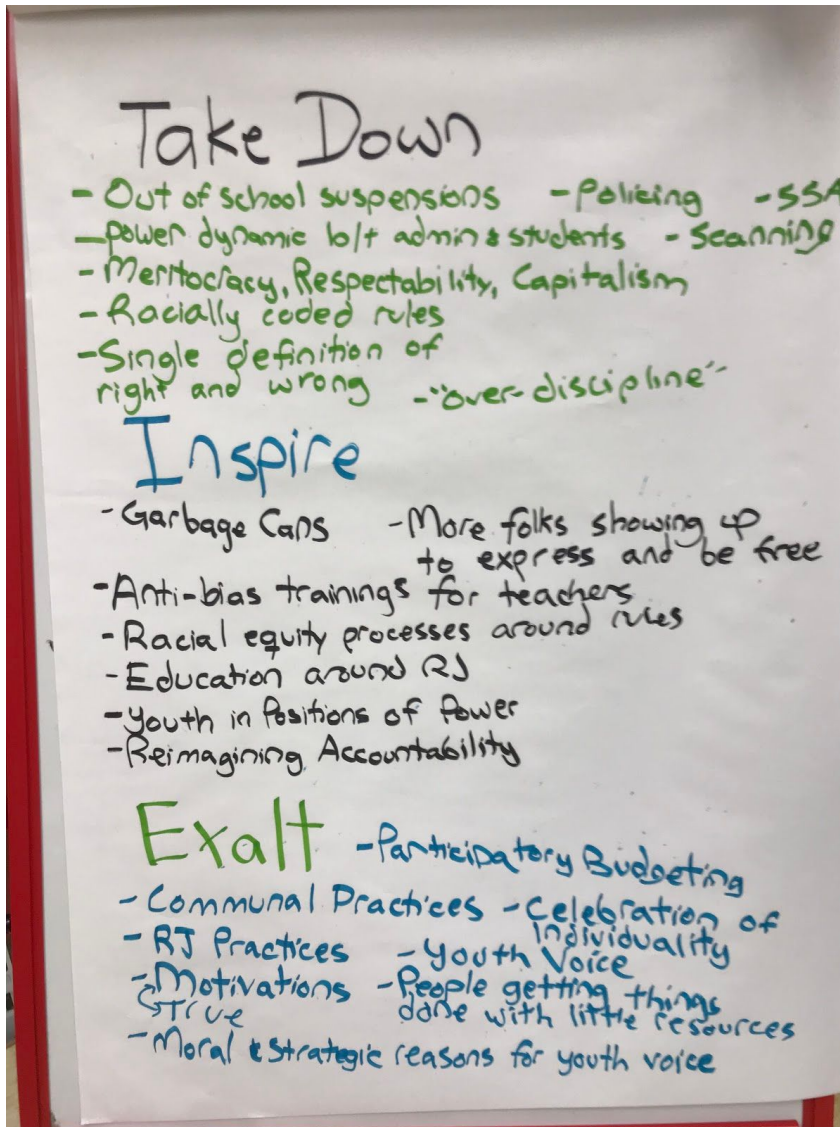 Take Down
- Out of school suspensions - Policing - SSA
- power dynamic b/t admin & students - Scanning
- Meritocracy, Respectability, Capitalism
- Racially coded rules
- Single definition of
right and wrong - "over-discipline"
Inspire
- Garbage Cans - More folks showing up
to express and be free
- Anti-bias trainings for teachers
- Racial equity processes around rules
- Education around RJ
- Youth in Positions of Power
- Reimagining Accountability
Exalt - Participatory Budgeting
- Communal Practices - Celebration of
Individuality
- RJ Practices - Youth Voice
- Motivations - People getting things
↳ True done with little resources
- Moral & Strategic reasons for youth voice